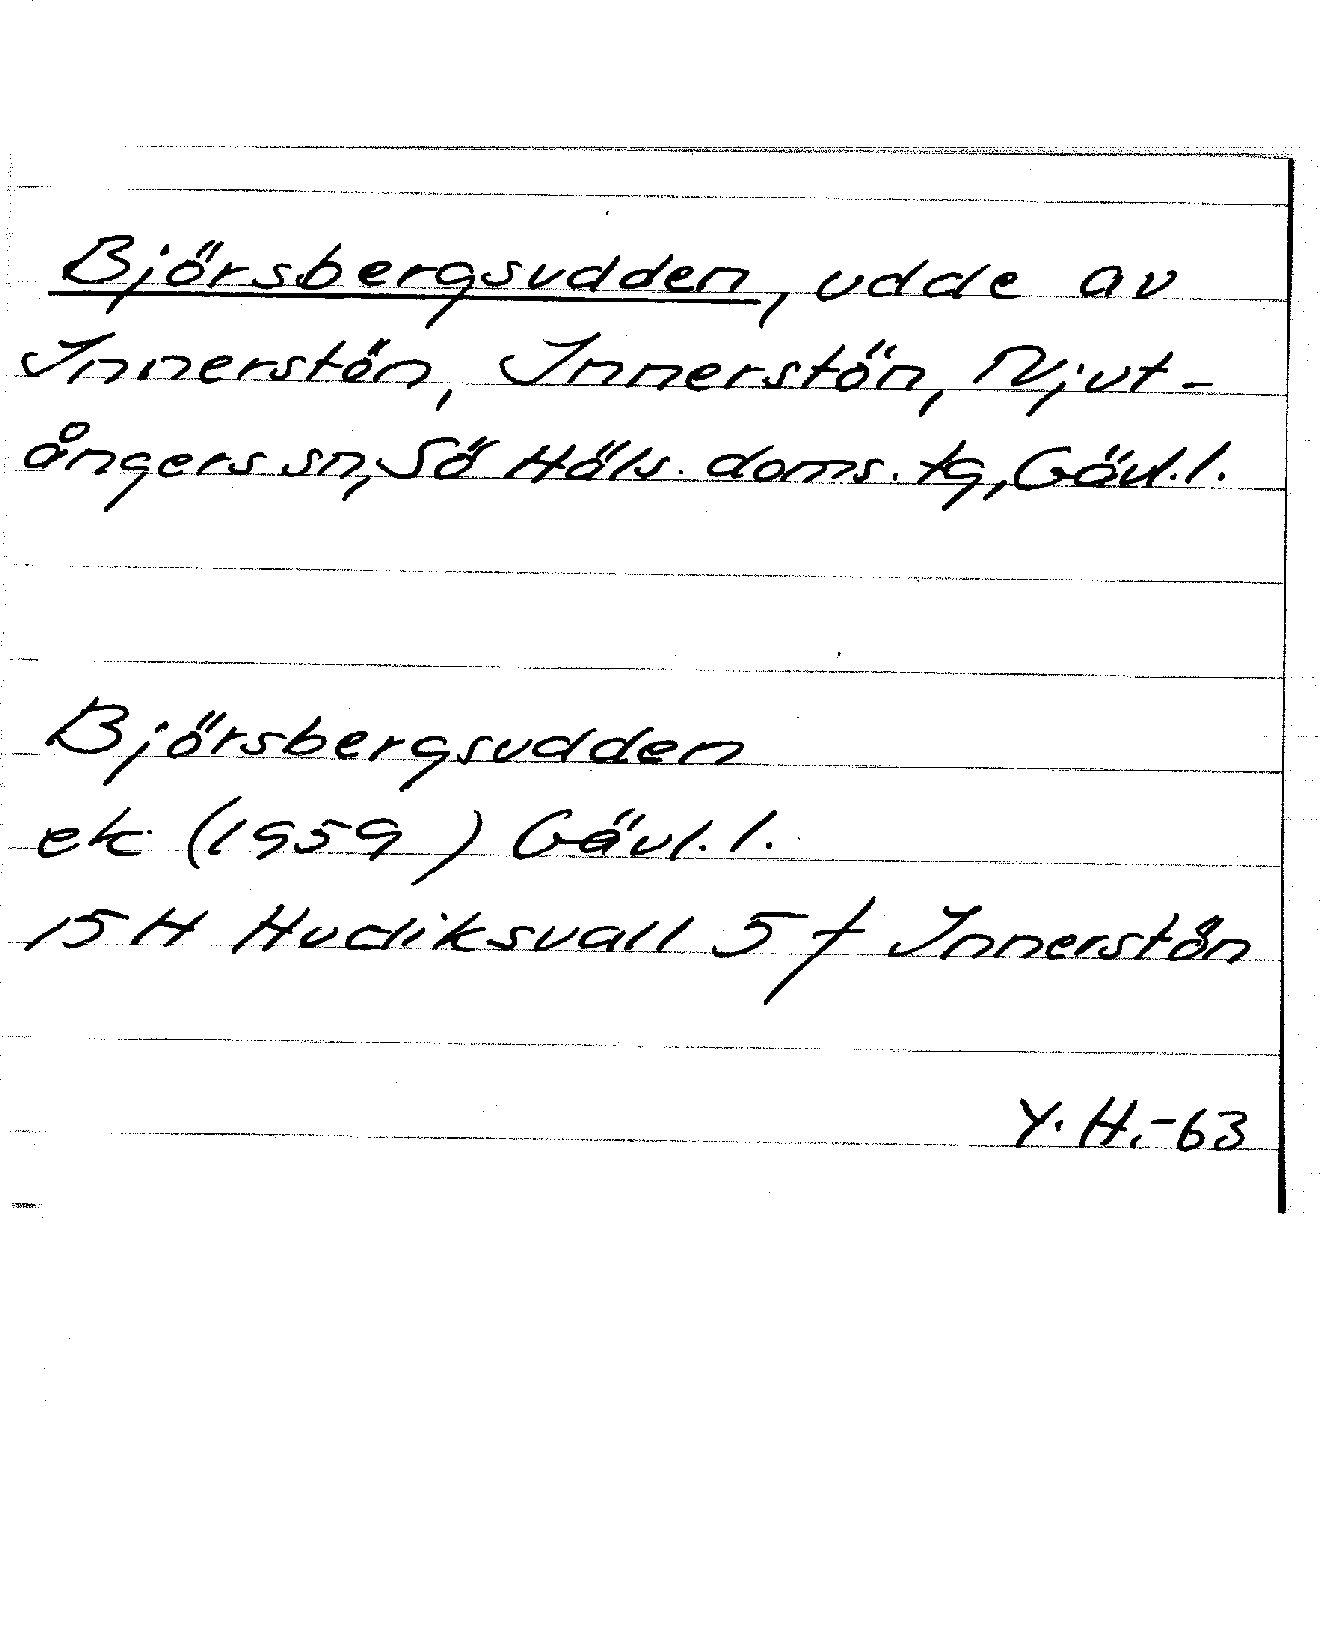 Björsbergsudden, udde av
Innerstön, Innerstön, Njut-
ångers sn, Sö Häls. doms. tg, Gävl. l.
Björsbergsudden
ek (1959) Gävl. l.
15 H Hudiksvall 5 f Innerstön
Y. H. -63